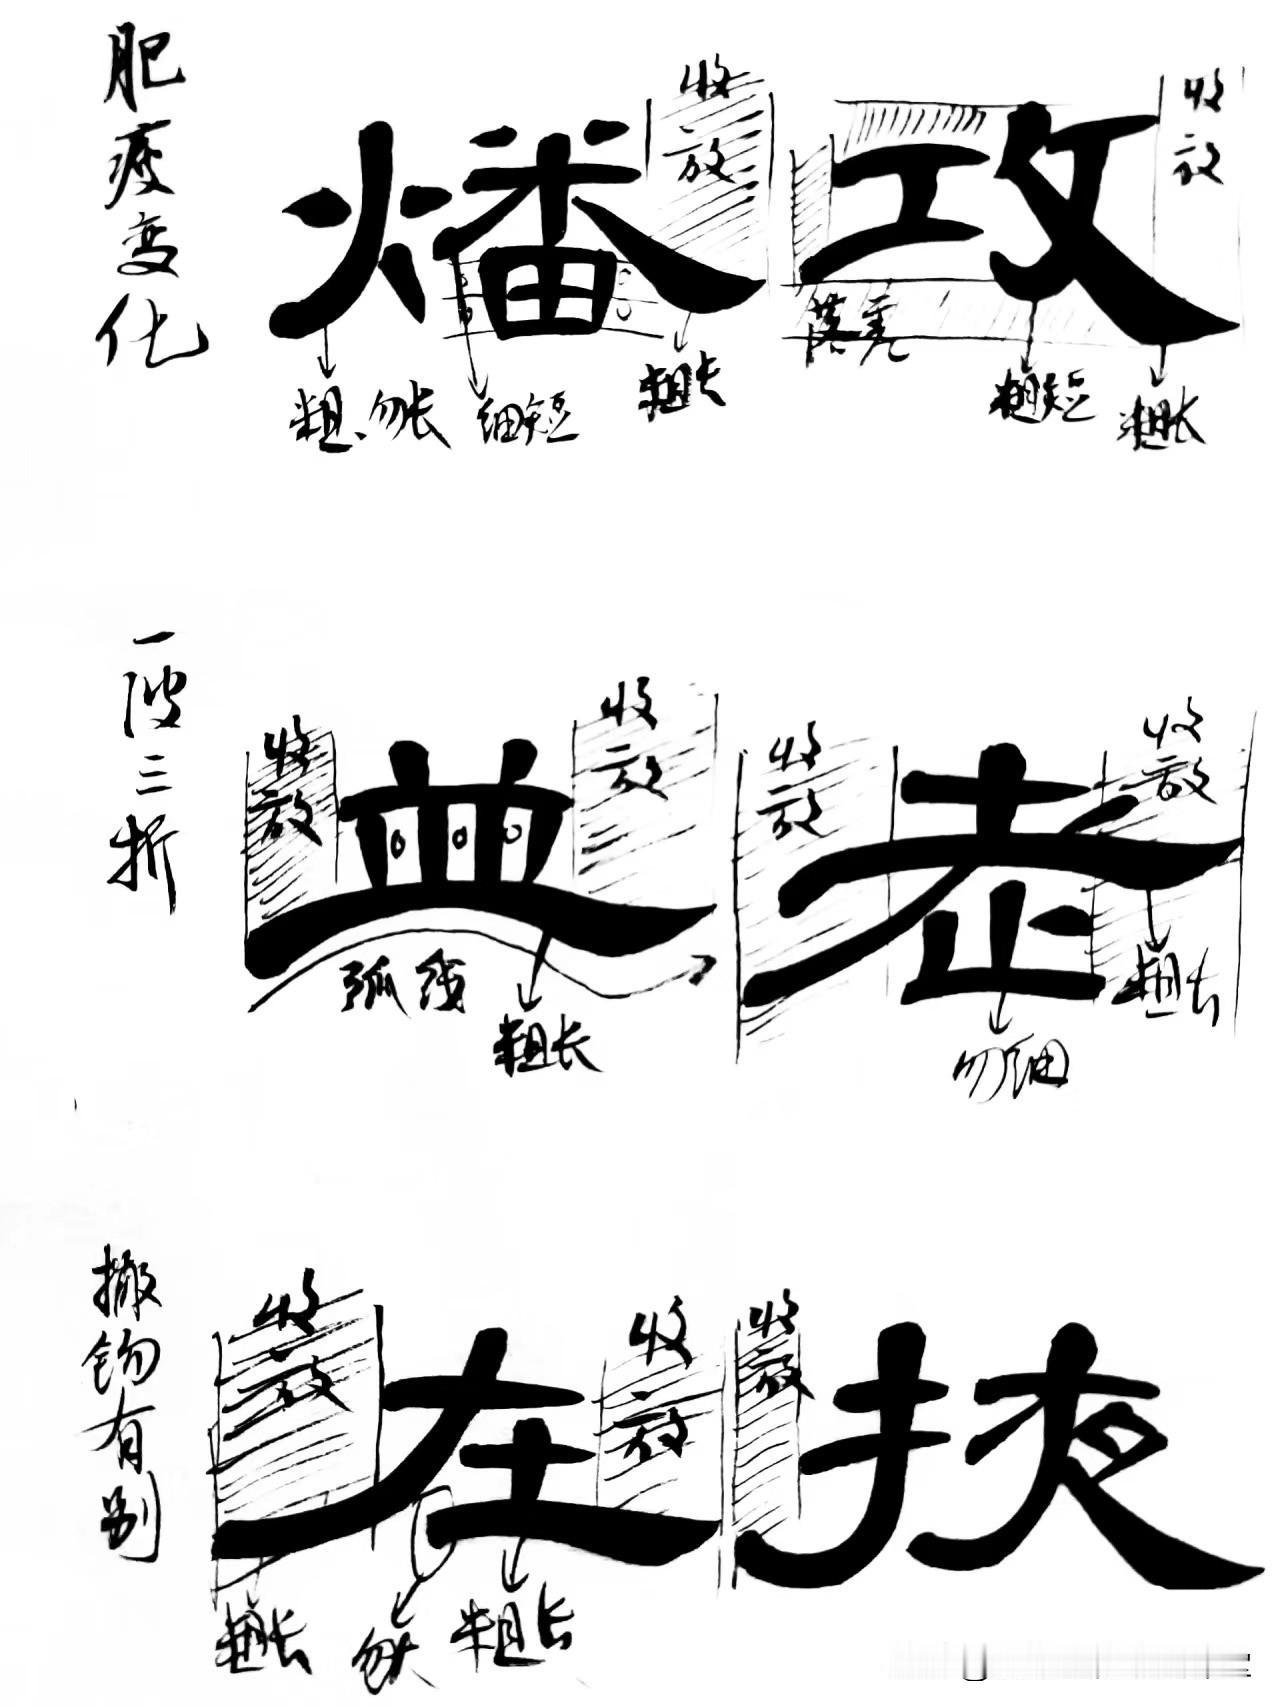 肥瘦变化
收放
收放
燔
攻
落霓
粗、勿长
细短
粗长
粗短
粗长
一波三折
收放
收放
收放
收放
典
老
弧线
粗长
粗长
勿细
撇钩有别
收放
收放
收放
在
掖
粗长
勿大
粗长